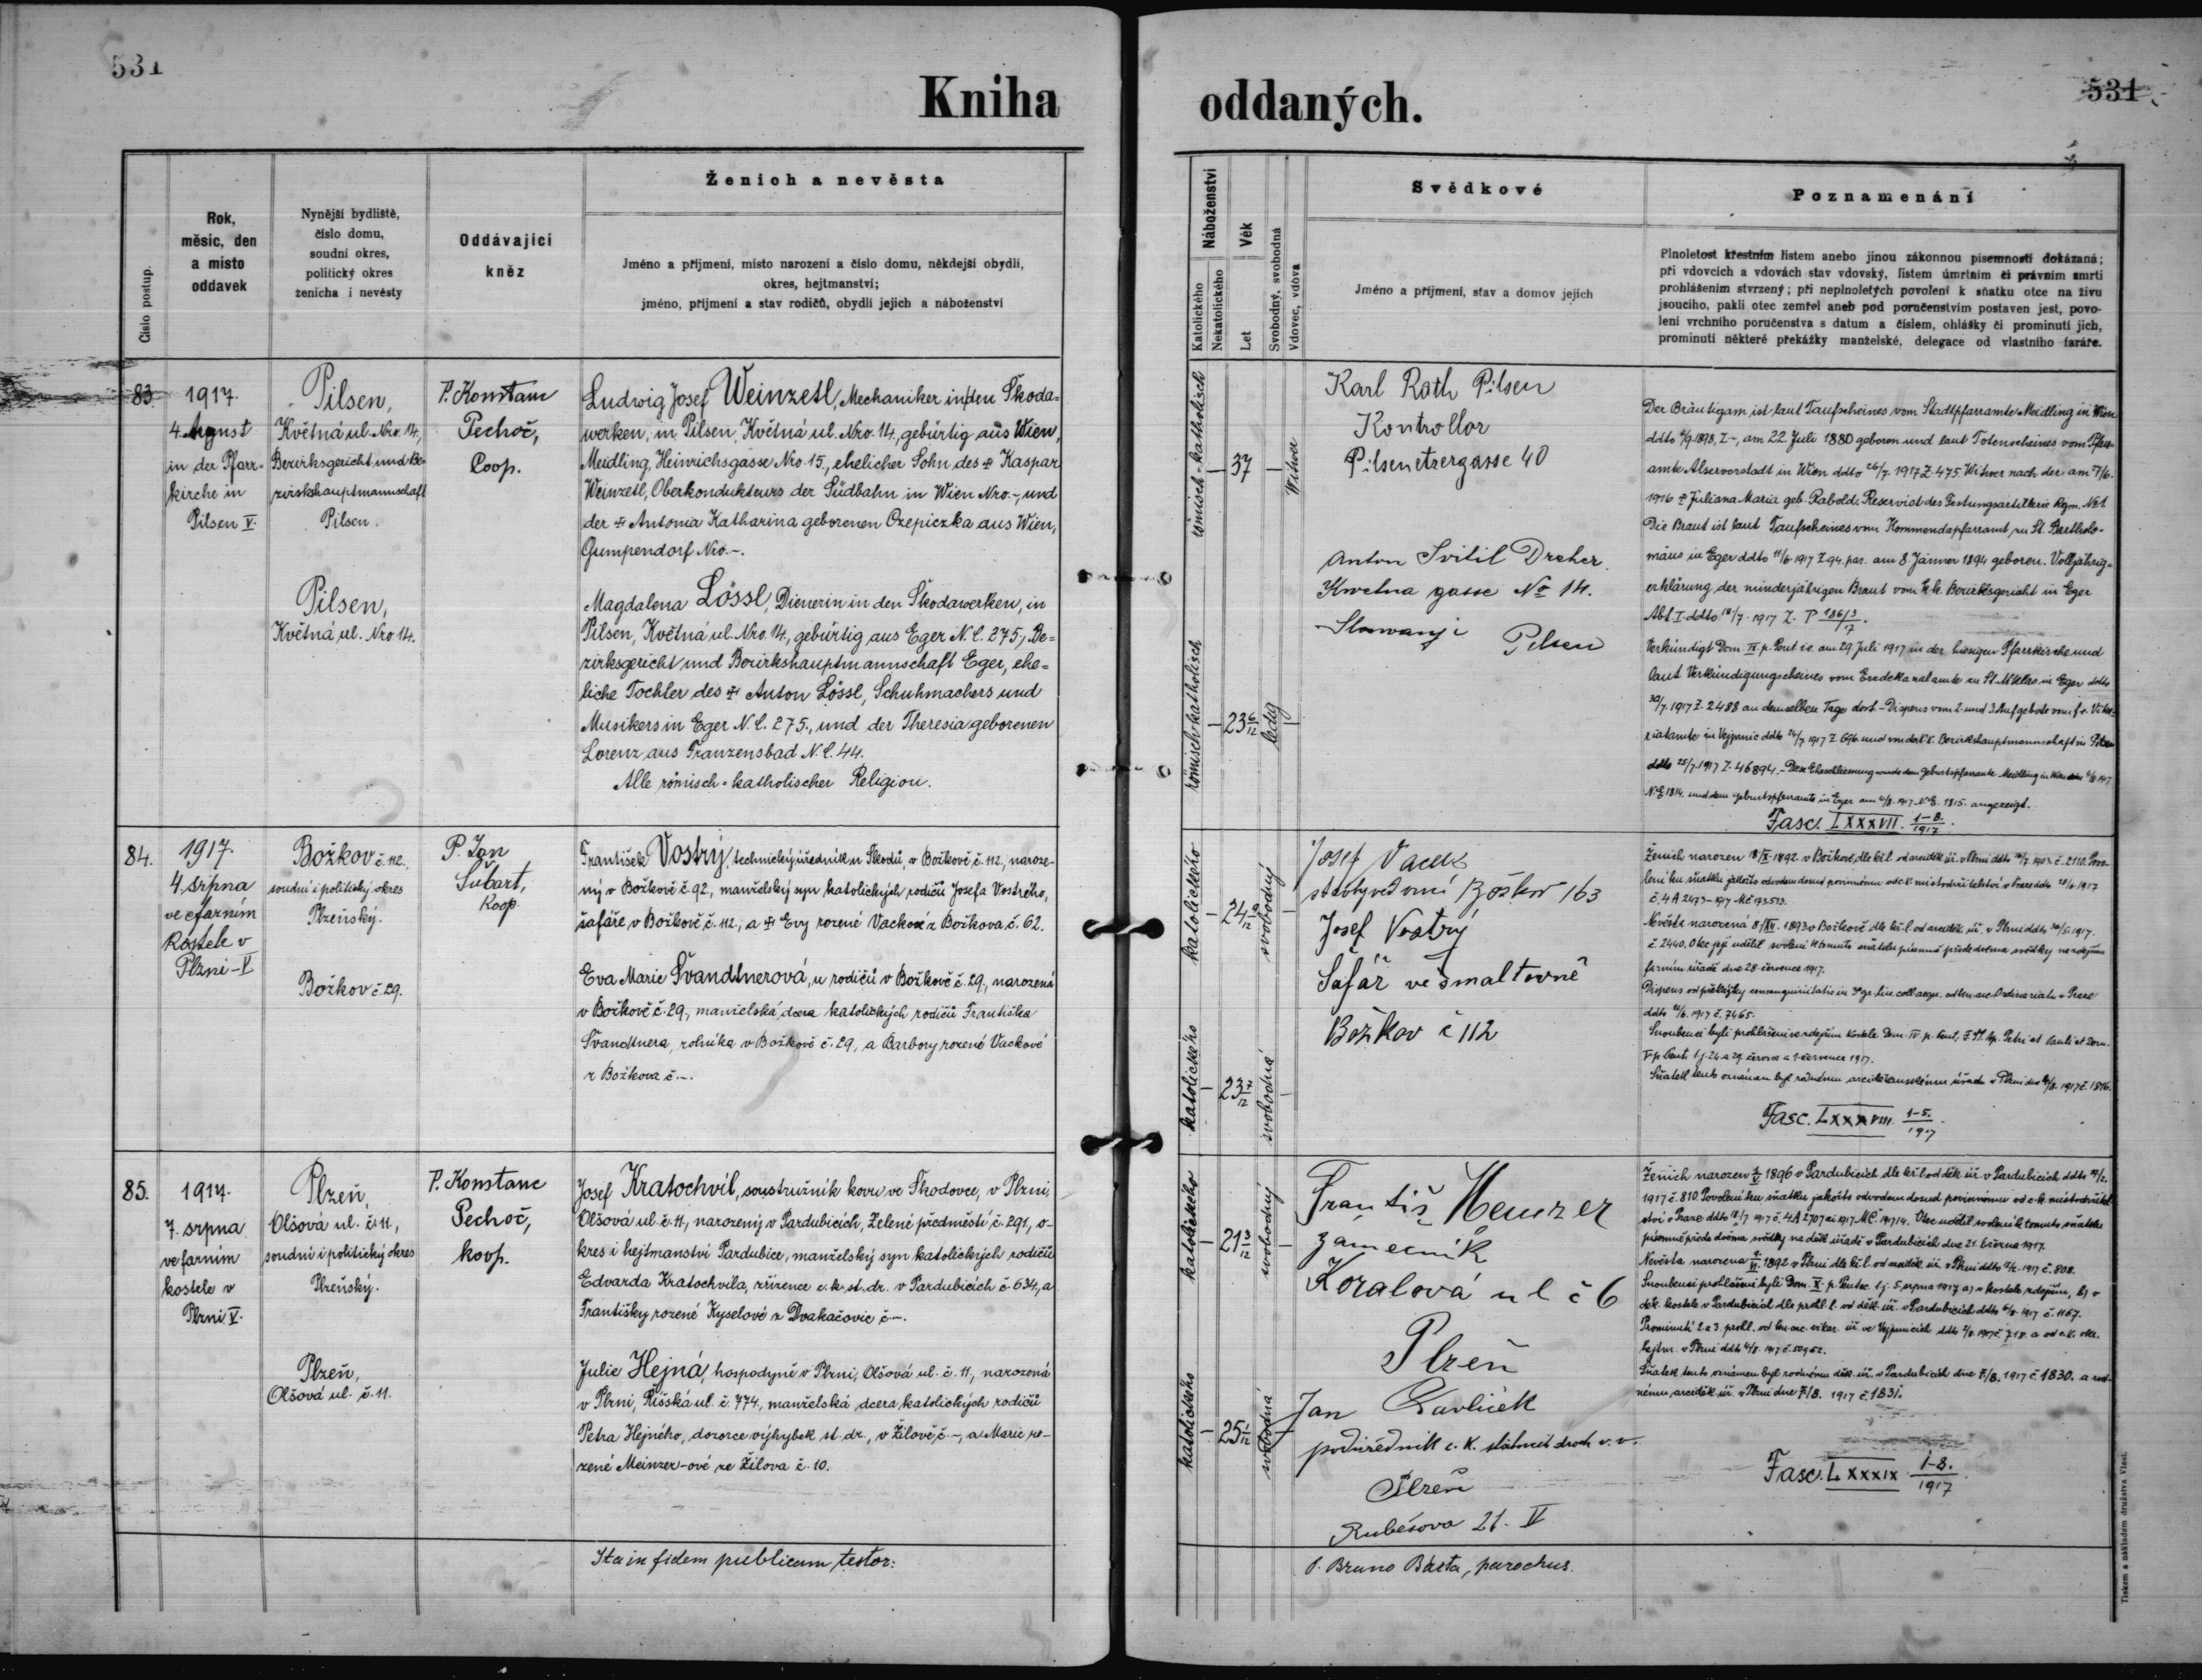 531
Kniha
Číslo postup.
Rok,
měsíc, den
a místo
oddavek
Nynější bydliště,
číslo domu,
soudní okres,
politický okres
ženicha i nevěsty
Oddávající
kněz
Ženich a nevěsta
Jméno a příjmení, místo narození a číslo domu, někdejší obydlí,
okres, hejtmanství;
jméno, příjmení a stav rodičů, obydlí jejich a náboženství
83.
1917.
4. August
in der Pfarr-
kirche in
Pilsen V.
Pilsen,
Květná ul. Nro. 14,
Bezirksgericht und Be-
zirkshauptmannschaft
Pilsen.
Pilsen,
Květná ul. Nro 14.
P. Konstanc
Pechoč,
Coop.
Ludwig Josef Weinzetl, Mechaniker in den Škoda-
werken, in Pilsen, Květná ul. Nro. 14, gebürtig aus Wien,
Meidling, Heinrichsgasse Nro. 15., ehelicher Sohn des † Kaspar
Weinzetl, Oberkondukteurs der Südbahn in Wien Nro.-, und
der † Antonia Katharina geborenen Czepiczka aus Wien,
Gumpendorf Nro.-.
Magdalena Lössl, Dienerin in den Škodawerken, in
Pilsen, Květná ul. Nro. 14, gebürtig aus Eger N. C. 275, Be-
zirksgericht und Bezirkshauptmannschaft Eger, ehe-
liche Tochter des † Anton Lössl, Schuhmachers und
Musikers in Eger N. C. 275., und der Theresia geborenen
Lorenz aus Franzensbad N. C. 44.
Alle römisch-katholischer Religion.
84.
1917.
4. srpna
ve farním
kostele v
Plzni-V
Božkov č. 112.
soudní i politický okres
Plzeňský.
Božkov č. 29.
P. Jan
Šubart,
Koop.
František Vostrý, technický úředník u Škodů, v Božkově č. 112., naroze-
ný v Božkově č. 92, manželský syn katolických rodičů Josefa Vostrého,
šafáře v Božkově č. 112., a † Evy rozené Vackové z Božkova č. 62.
Eva Marie Švandtnerová, u rodičů v Božkově č. 29., narozená
v Božkově č. 29., manželská dcera katolických rodičů Františka
Švandtnera, rolníka v Božkově č. 29, a Barbory rozené Vackové
z Božkova č.-.
85.
1917.
7. srpna
ve farním
kostele v
Plzni V.
Plzeň,
Olšová ul. č. 11,
soudní i politický okres
Plzeňský.
Plzeň,
Olšová ul. č. 11.
P. Konstanc
Pechoč,
koop.
Josef Kratochvíl, soustružník kovu ve Škodovce, v Plzni,
Olšová ul. č. 11, narozený v Pardubicích, Zelené předměstí č. 291, o-
kres i hejtmanství Pardubice, manželský syn katolických rodičů
Edvarda Kratochvíla, zřízence c. k. st. dr. v Pardubicích č. 634, a
Františky rozené Kyselové z Dvakačovic č-.
Julie Hejná, hospodyně v Plzni, Olšová ul. č. 11, narozená
v Plzni, Říšská ul. č. 774, manželská dcera katolických rodičů
Petra Hejného, dozorce výhybek st. dr., v Žilově č.-, a Marie ro-
zené Meinzer-ové ze Žilova č. 10.
Ita in fidem publicam testor:
oddaných.
531
Náboženství
Katolického
Nekatolického
Věk
Let
Svobodný, svobodná
Vdovec, vdova
Svědkové
Jméno a příjmení, stav a domov jejich
Poznamenání
Plnoletost křestním listem anebo jinou zákonnou písemností dokázaná;
při vdovcích a vdovách stav vdovský, listem úmrtním či právním smrti
prohlášením stvrzený; při neplnoletých povolení k sňatku otce na živu
jsoucího, pakli otec zemřel aneb pod poručenstvím postaven jest, povo-
lení vrchního poručenstva s datum a číslem, ohlášky či prominutí jich,
prominutí některé překážky manželské, delegace od vlastního faráře.
römisch-katholisch
37
Witwer
römisch katholisch
23 6/12
ledig
Karl Roth Pilsen
Kontrollor
Pilsenetzergasse 40
Anton Svitil Dreher.
Kwetna gasse No 14.
Pilsen
Der Bräutigam ist laut Taufscheines vom Stadtpfarramte Meidling in Wien
am 22 Juli 1880 geboren und laut Totenscheines vom Pfarr-
amte Alservorstadt in Wien ddto 26/7. 1917 Z. 475 Witwer nach der am
1916 † Juliana Maria geb. Rabold. Reservist des Festungsartillerie Regm. No 1
Die Braut ist laut Taufscheines vom Kommendapfarramt zu St. Bartholo-
mäus in Eger ddto 11/6. 1917 Z. 94. par. am 8. Jänner 1894 geboren. Volljährig-
erklärung der minderjährigen Braut vom k. k. Bezirksgericht in Eger
Abt. I. ddto 18/7. 1917 Z. P 186/3 17.
Verkündigt Dom. IX. p. Pent. i. e. am 29. Juli 1917 in der hiesigen Pfarrkirche und
laut Verkündigungscheines vom Erzdekanalamte zu St. Niklas in Eger ddto
30/7. 1917 Z. 2488 an demselben Tage dort. - Dispens vom 2. und 3. Aufgebote vom f. e. Vika-
riatamte in Vejprnic ddto 24/7. 1917 Z. 696 und von der k. k. Bezirkshauptmannschaft in Pilsen
ddto 25/7. 1917 Z. 46894. - Diese Eheschliessung wurde dem Geburtspfarramte Meidling in Wien
N. E. 1814. und dem Geburtspfarramte in Eger am 4/8. 1917 N. E. 1815. angezeigt.
Fasc. LXXXVII. 1-8. 1917.
katolického
24 9/12
svobodný
katolického
23 7/12
svobodná
Josef Vacek
stavbyvedoucí Božkov 163
Josef Vostrý
Šafář ve smaltovně
Božkov č 112
Ženich narozen 18/X. 1892. v Božkově, dle kř. l. od arciděk. úř. v Plzni
č. 4 A 2473-1917
Nevěsta narozená 8/XII. 1893 v Božkově dle kř. l. od arciděk. úř. v Plzni
č. 2440. Otec její udělil svolení k tomuto sňatku písemně přede dvěma svědky na zdejším
farním úřadě dne 28. července 1917.
č. 7465.
Snoubenci byli prohlášeni ve zdejším kostele Dom. IV. p. Pent.,
V. p. Pent. t. j. 24. a 29. června a 1. července 1917.
Sňatek tento oznámen byl rodnému arciděkanskému úřadu v Plzni dne 4/8. 1917 č. 1816.
Fasc. LXXXVIII. 1-5. 1917.
katolického
21 3/12
svobodný
katolického
25 1/12
svobodná
zamečník
Koralová ul č 6
Plzeň
Jan Pavlíček
podúředník c. k. státních drah v. v.
Plzeň
Rubešova 21. V
Ženich narozen 1896 v Pardubicích dle kř. l. od děk. úř. v Pardubicích
1917 č. 810. Povolení ku sňatku jakožto odvodem dosud povinnému od c. k. místodržitel-
ství v Praze ddto 18/7. 1917 Otec udělil svolení k tomuto sňatku
písemně přede dvěma svědky na děk. úřadě v Pardubicích dne 21. června 1917.
Nevěsta narozena 1892 v Plzni dle kř. l. od arciděk. úř. v Plzni 1917 č. 808.
Snoubenci prohlášeni byli Dom. X. p. Pentec. t. j. 5. srpna 1917 a) v kostele zdejším, b) v
děk. kostele v Pardubicích dle prohl. l. od děk. úř. v Pardubicích ddto 6/8. 1917 č. 1167.
Prominutí 2. a 3. prohl. od
Sňatek tento oznámen byl rodnému děk. úř. v Pardubicích dne 7/8. 1917 č 1830. a rod-
nému arciděk. úř. v Plzni dne 7/8. 1917 č. 1831.
Fasc. LXXXIX 1-8. 1917.
P. Bruno Bašta, parochus.
Tiskem a nákladem družstva Vlast.